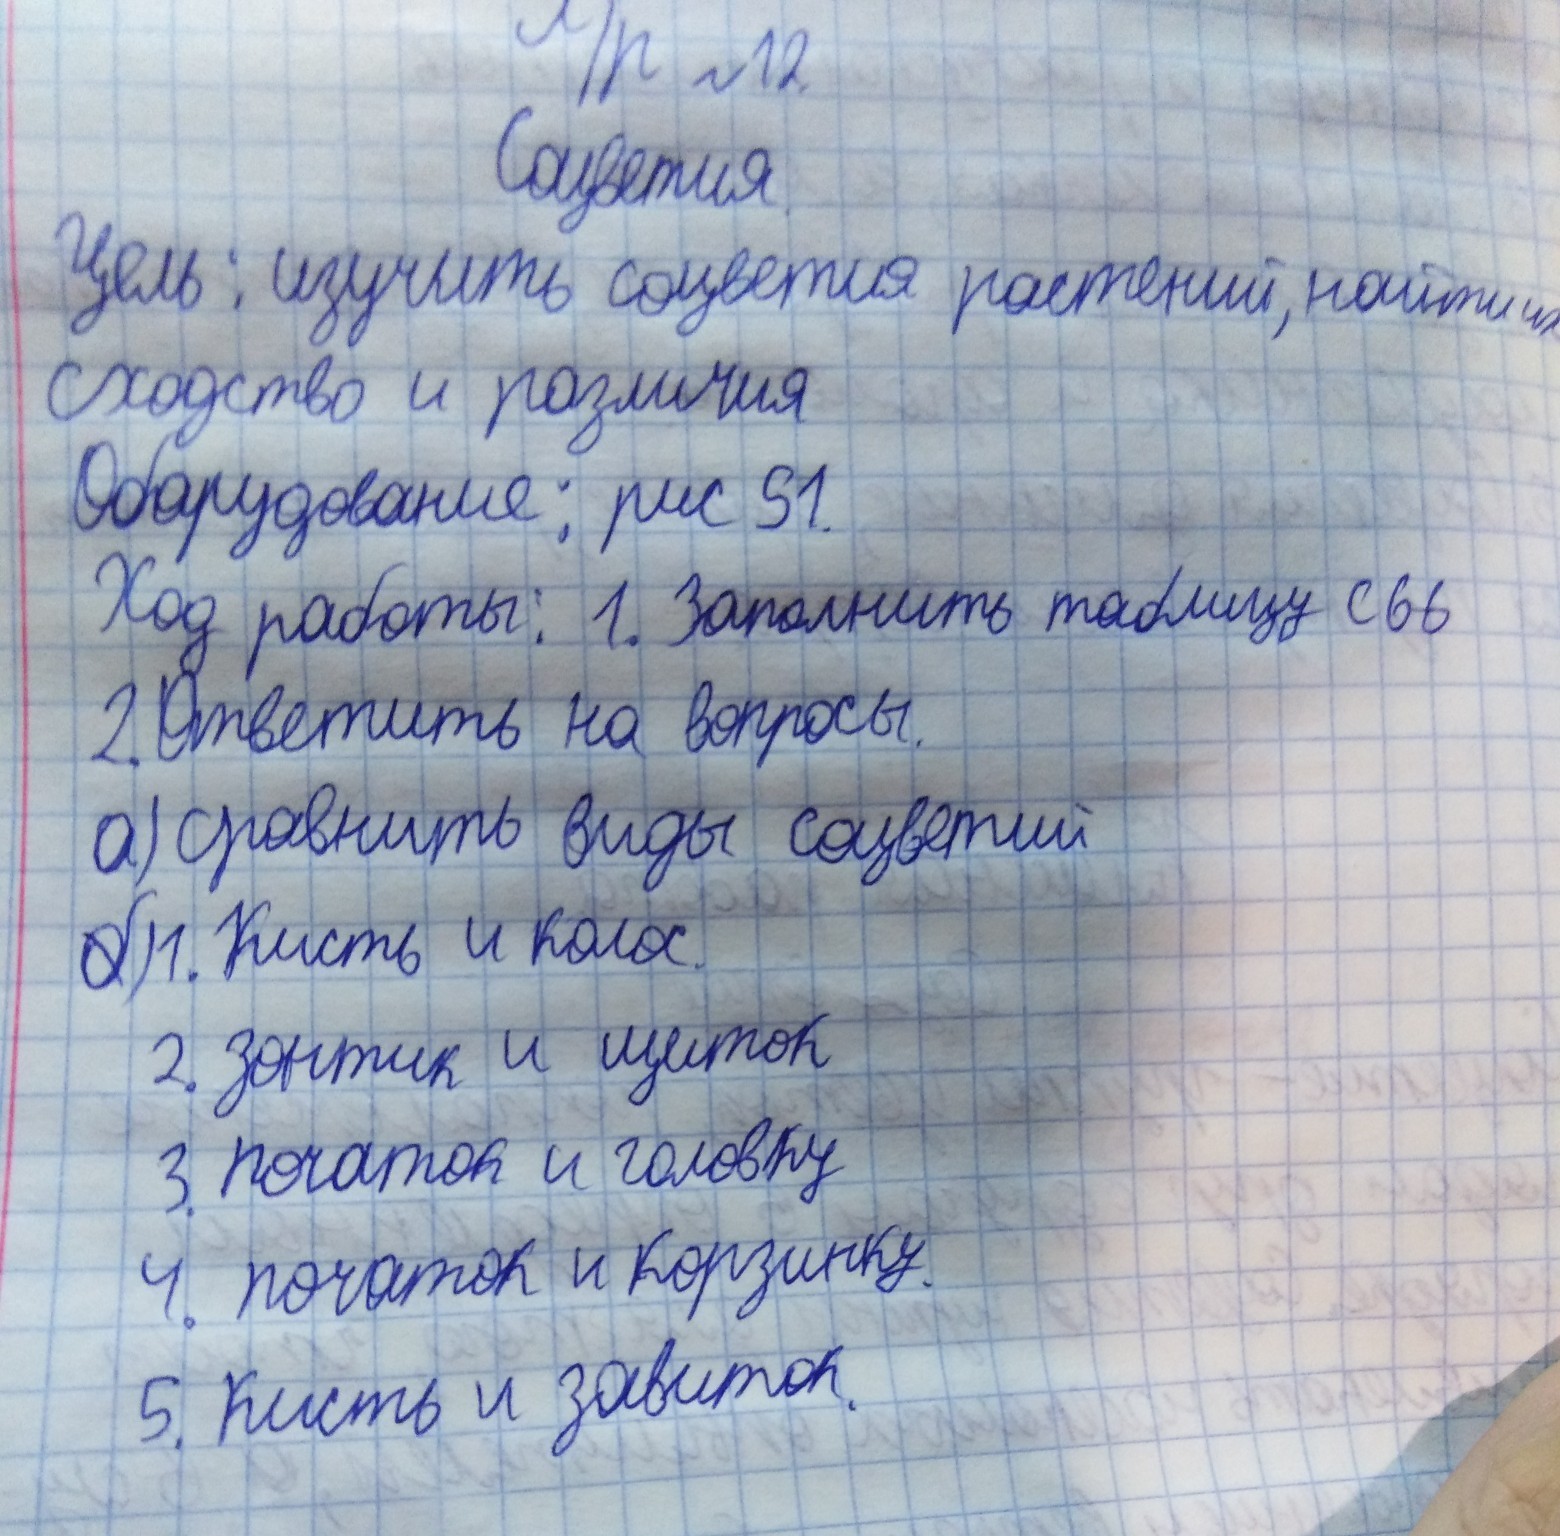 Л/р №12
Соцветия.
Цель: изучить соцветия растений, найти их
сходство и различия
Оборудование: рис 91.
Ход работы: 1. Заполнить таблицу С66
2. Ответить на вопросы.
а) сравнить виды соцветий
б) 1. Кисть и колос.
2. Зонтик и щиток
3. початок и головку
4. початок и корзинку.
5. Кисть и завиток.